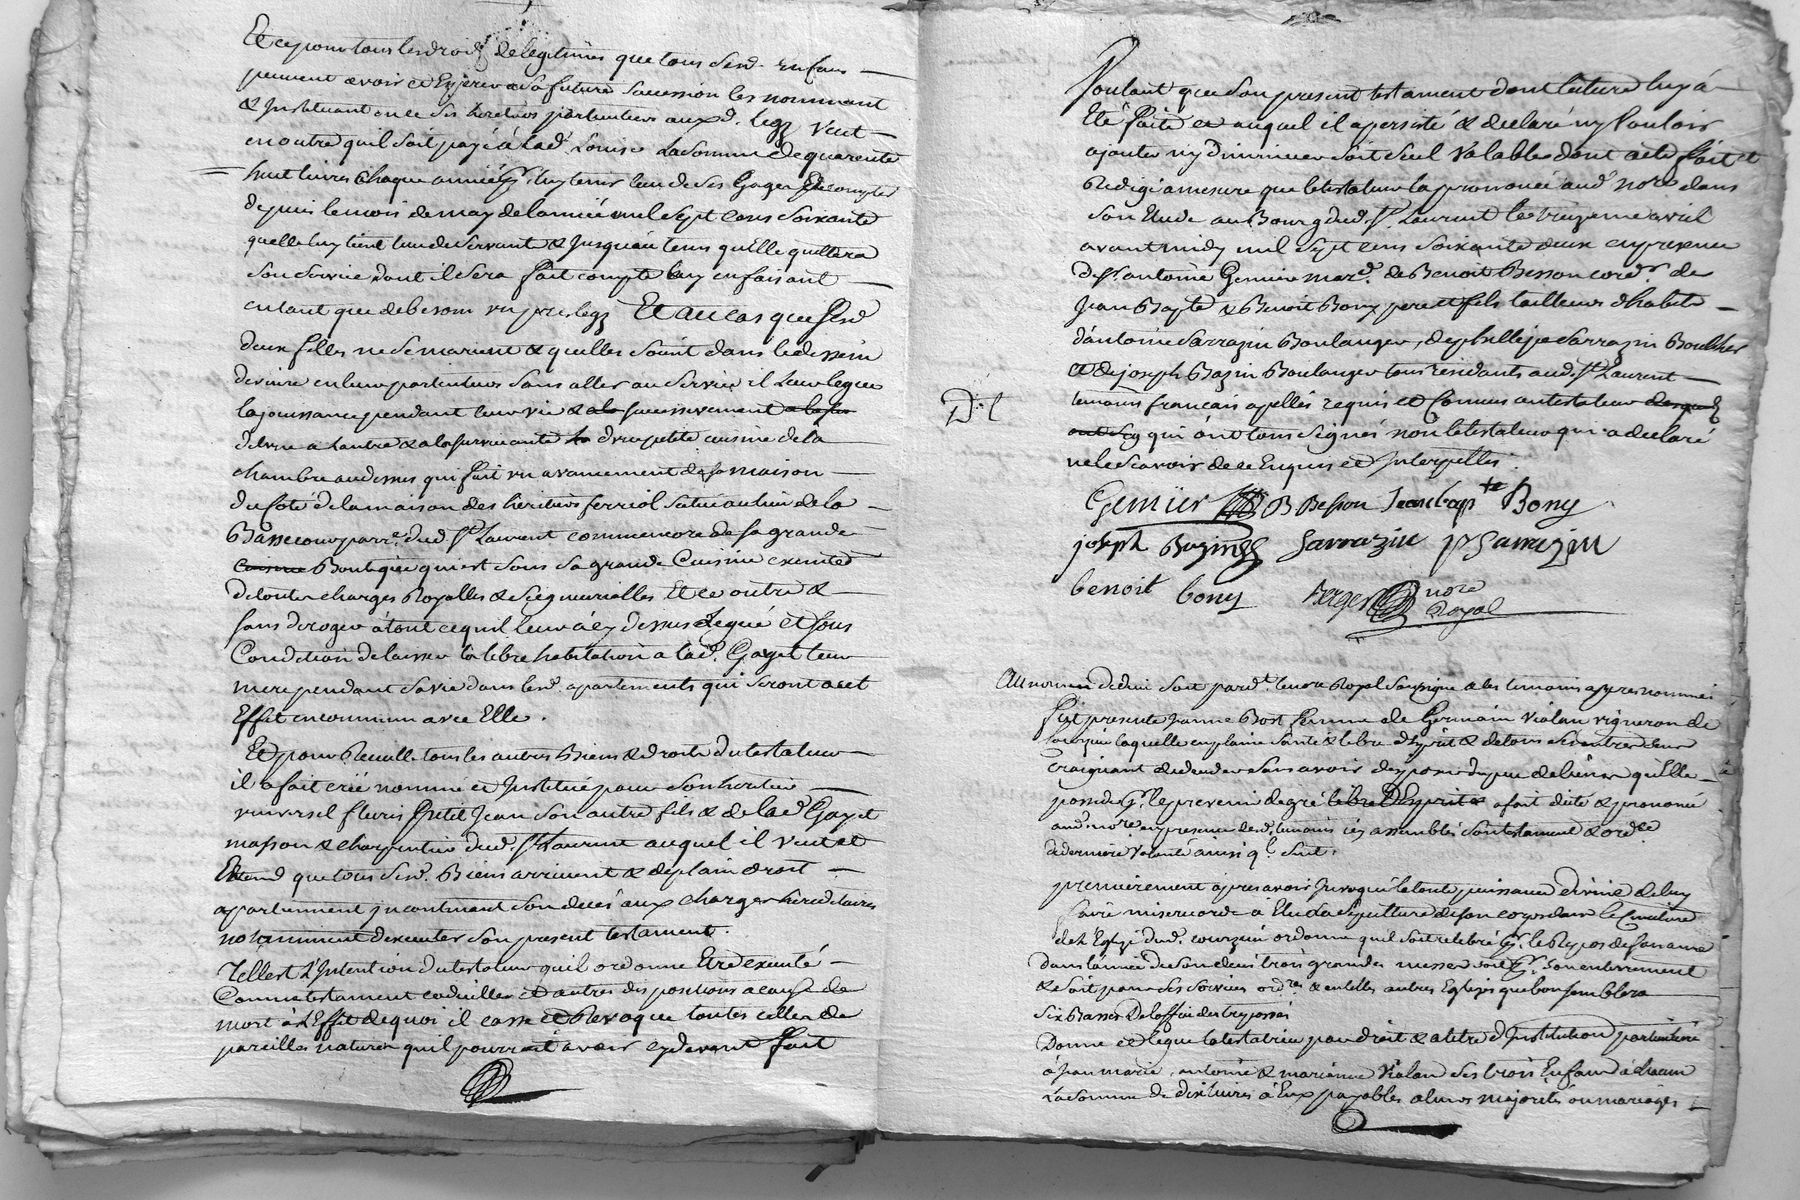 Et ce pour tous les droits de legitimes que tous sesd. Enfans
peuvent avoir et Esperer a sa future succession les nommant
& Instituant en ce ses heritiers particuliers auxd. legz veut
en outre quil soit payé à lad. Louise La somme de quarente
huit livres chaque année pr. luy tenir lieu de ses Gages à compter
depuis le mois de may de lannée mil sept cens soixante
quelle luy tient lieu de servante & jusqu'au tems qu'Elle quittera
son service dont il sera fait compte luy en faisant
entant que de besoin un prelegz Et au cas que sesd
deux filles ne se marient & quelles soient dans le dessein
de vivre en leur particulier sans aller au service il leur legue
la jouissance pendant leur vie & successivement
de lune a lautre & a la survivante dune petite cuisine de la
chambre au dessus qui fait un avancement de sa maison
du coté de la maison des heritiers ferriol située au lieu de la
Basse cour parre. dud. St. Laurent commencera de sa grande
Boutique qui est sous sa grande Cuisine exempte
de toutes charges Royalles & Seigneurialles Et ce outre &
sans deroger à tout ce quil leur à cy dessus Legué Et sous
Condition de laisser la libre habitation a lad. Gayet leur
mere pendant sa vie dans lesd. apartements qui seront a cet
Effet en commun avec Elle.
Et pour Reuelle tous les autres Biens & droits du testateur
il a fait créé nommé et Institué pour son heritier
universel fleuris Petit Jean son autre fils & de lad. Gayet
masson & charpentier dud. St. Laurent auquel il veut et
Entend que tous sesd. Biens arrivent & de plain droit
apartiennent incontinant son decés aux charges hereditaires
notamment d'executer son present testament.
Tellest L'Intention du testateur qu'il ordonne Etre executé
Comme testament codicille et autres dispositions a cause de
mort à L'Effet de quoi il casse et Revoque toutes celles de
pareilles natures qu'il pourroit avoir cy devant fait
Voulant que son present testament dont lecture luy à
Eté faite et auquel il a persisté & declaré ny Vouloir
ajouter ny diminuer soit seul Valable dont acte fait et
Redigé a mesure que le testateur la prononcé aud. nore dans
son Etude au Bourg dud. St. Laurent le treizieme avril
avant midy mil sept cens soixante deux en presence
de sr. antoine Genier mard. de Benoit Besson cordr. de
Jean Bapte & Benoit Bony pere et fils tailleurs d'habits
d'antoine Sarrazin Boulanger, de phellipe Sarrazin
et de joseph Bazin Boulanger tous residants aud. St. Laurent
temoins francais apellés requis et Connus au testateur
qui ont tous signés non le testateur qui a declaré
ne le scavoir de ce Enquis et Interpellé.
D. l
Genier B Besson Jean bapte Bony
joseph Bazin Sarrazin p Sarrazin
benoit bony Berger nore
Royal
Au nom de dieu soit pard.t. nore Royal Soussigné & les temoins apres nommés
fut presente Jeanne Bost femme de Germain Violan vigneron de
Courzieu laquelle en plaine santé & libre d'Esprit & de tous ses autres sens
Craignant de deceder sans avoir disposé du peu de biens qu'Elle
possede pr. le prevenir de gré libre D'Esprit a fait dicté & prononcé
aud. nore en presence desd. temoins icy assemblés son testament & ordce
de derniere Volonté ainsi q.l. suit.
premierement apres avoir Invoqué la toute puissance divine de luy
faire misericorde à Elu La sepulture de son corps dans le Cimitiere
de L'Eglise dud. courzieu ordonne quil soit celebré pr. le Repos de son ame
dans l'année de son decés trois grandes messes soit pr. son enterrement
& soit pour ses services ordres & en telles autres Eglises que bon semblera
six Basses De l'office des trepassés
Donne et legue la testatrice par droit & a titre d'Institution particuliere
à jean marie, antoine & marianne Violan ses trois Enfans à chacun
La somme de dix livres à Eux payables a leurs majorités ou mariages